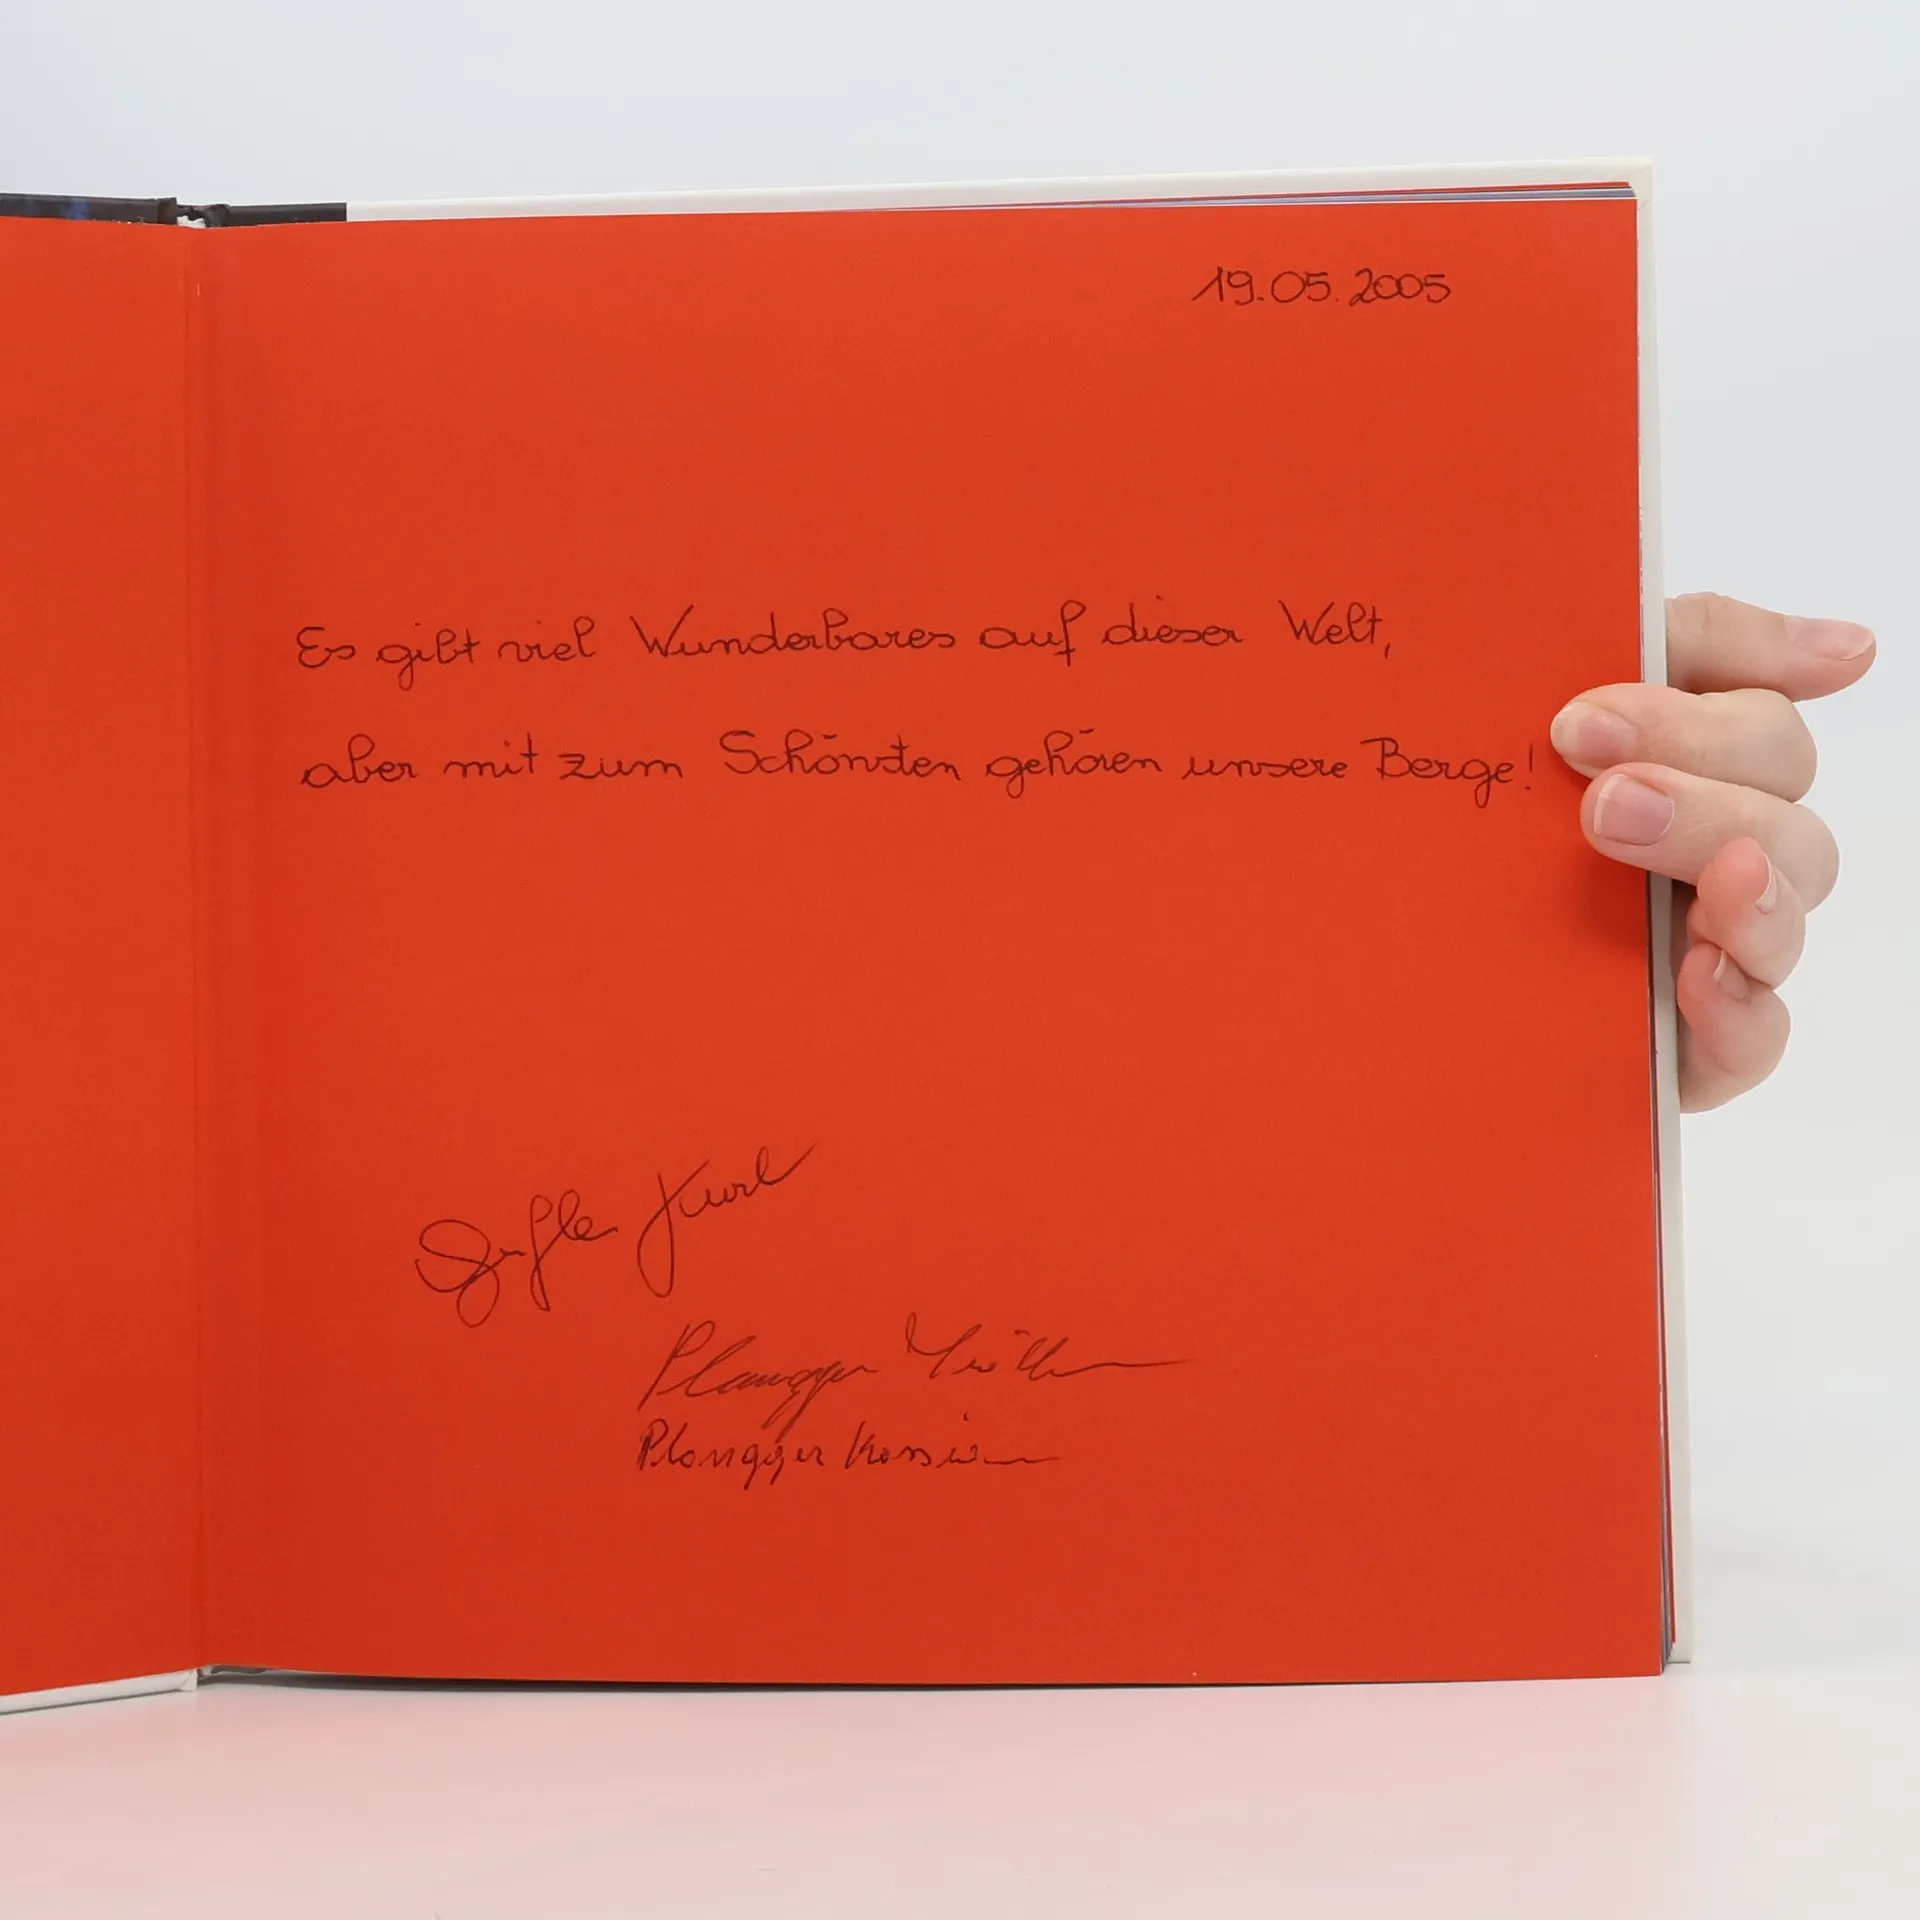 19.05.2005
Es gibt viel Wunderbares auf dieser Welt,
aber mit zum Schönsten gehören unsere Berge!
Kurl
Plangger
Plangger Kassian